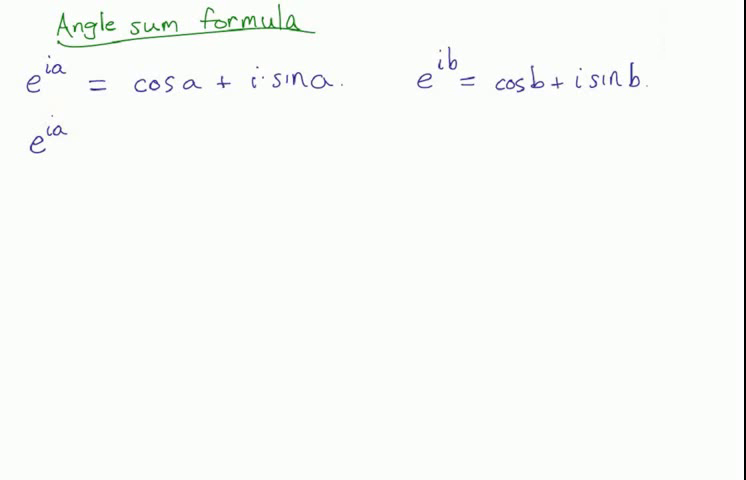 Angle sum formula
e^{ia} = cos a + i·sin a. e^{ib} = cos b + i sin b.
e^{ia}